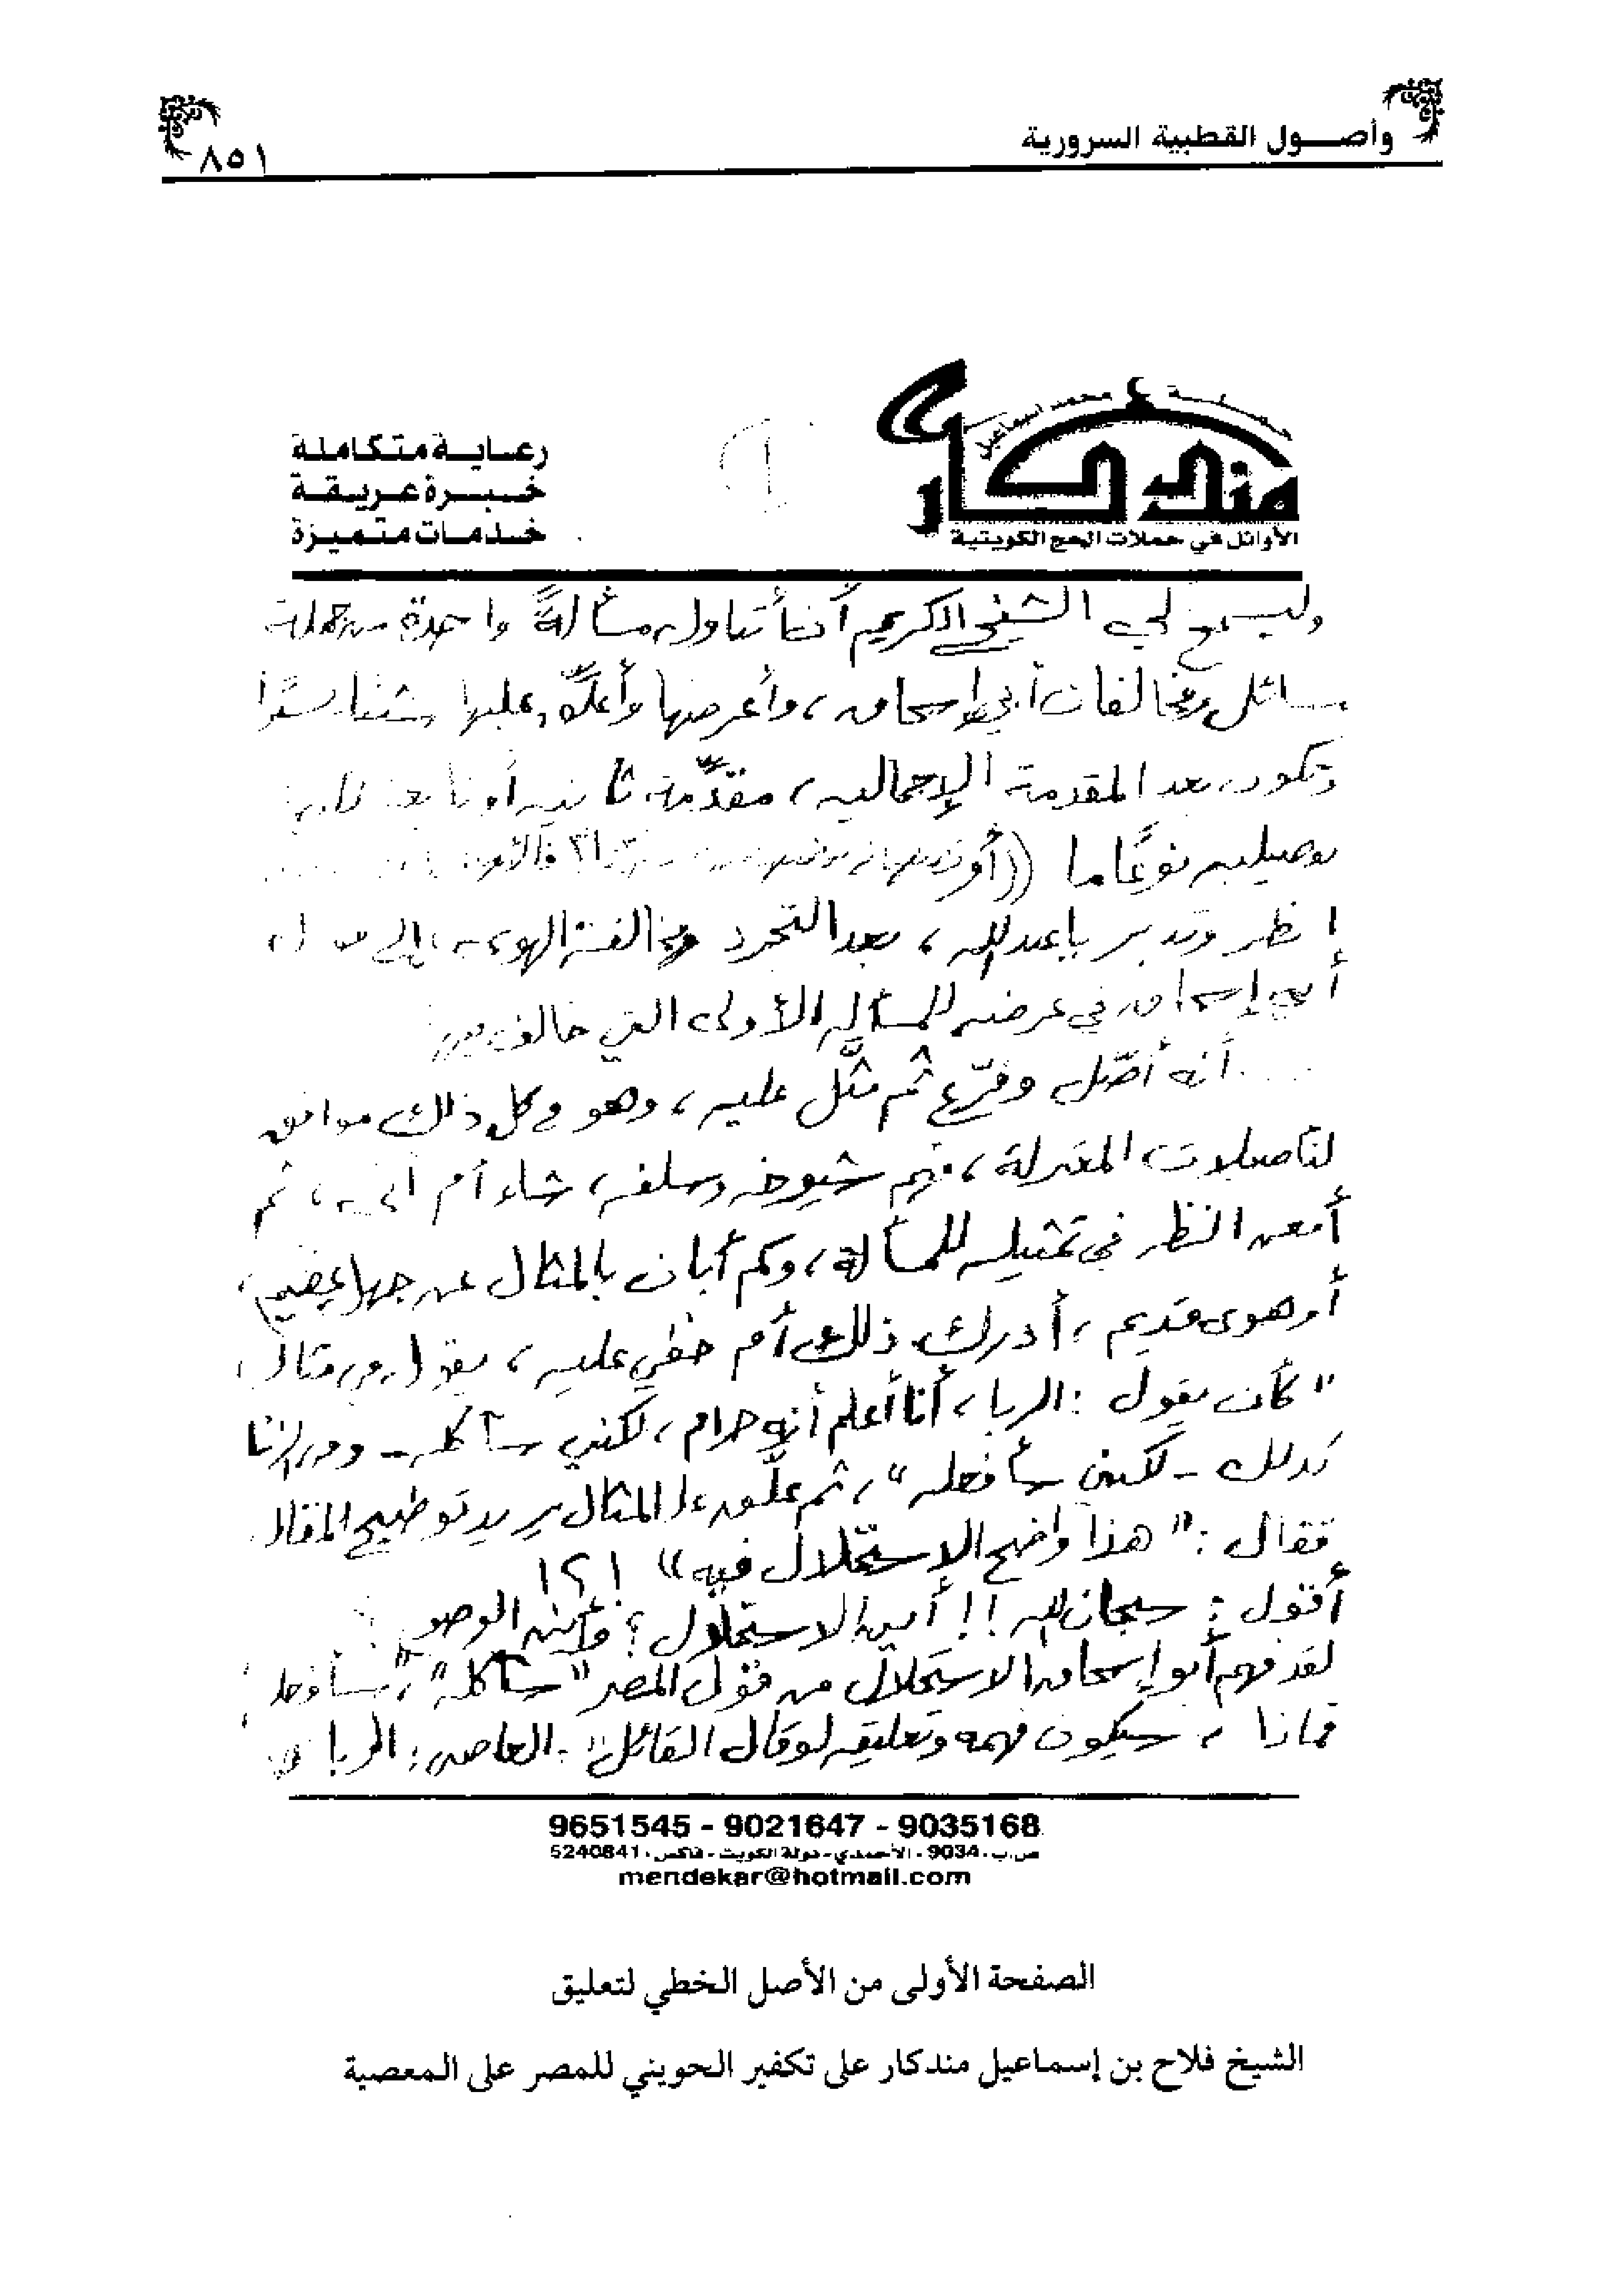 وأصـــول القطبية السرورية
٨٥١
حملة محمد إسماعيل
مندكار
الأوائل في حملات الحج الكويتية
رعـايـة متكاملة
خـبـرة عريـقـة
خدمـات متميزة
وليسمح لي الشيخ الكريم أن أتناول مسألةً واحدة من جملة
مسائل ومخالفات أبي إسحاق، وأعرضها وأعلّق عليها
وتكون بعد المقدمة الإجمالية، مقدّمة ثانية أو
تفصيلية نوعًا ما ((أو
انظر وتدبر يا عبد الله، بعد التجرد ومخالفة الهوى، إلى
أبي إسحاق في عرضه للمسألة الأولى التي خالف
أنه أصّل وفرّع ثم مثّل عليه، وهو في كل ذلك موافق
لتأصيلات المعتزلة، فهم شيوخه وسلفه، شاء أم أبى، ثم
أمعن النظر في تمثيله للمسألة، وكم أبان بالمثال عن جهل عظيم،
أو هوى قديم، أدرك ذلك أم خفي عليه، يقول
"كأن يقول: الربا، أنا أعلم أنه حرام، لكني سآكله - والزنا
كذلك - لكني سأفعله"، ثم علّق على المثال يريد توضيح المقال
فقال: "هذا واضح الاستحلال فيه" !؟!
أقول: سبحان الله!! أين الاستحلال؟ وأين الوضو
لقد فهم أبو إسحاق الاستحلال من قول المصر "سآكله"، "سأفعله"
فماذا سيكون فهمه وتعليقه لو قال القائل - العاصي: الربا
9651545 - 9021647 - 9035168
ص.ب. 9034 - الأحمدي - دولة الكويت - فاكس. 5240841
mendekar@hotmail.com
الصفحة الأولى من الأصل الخطي لتعليق
الشيخ فلاح بن إسماعيل مندكار على تكفير الحويني للمصر على المعصية